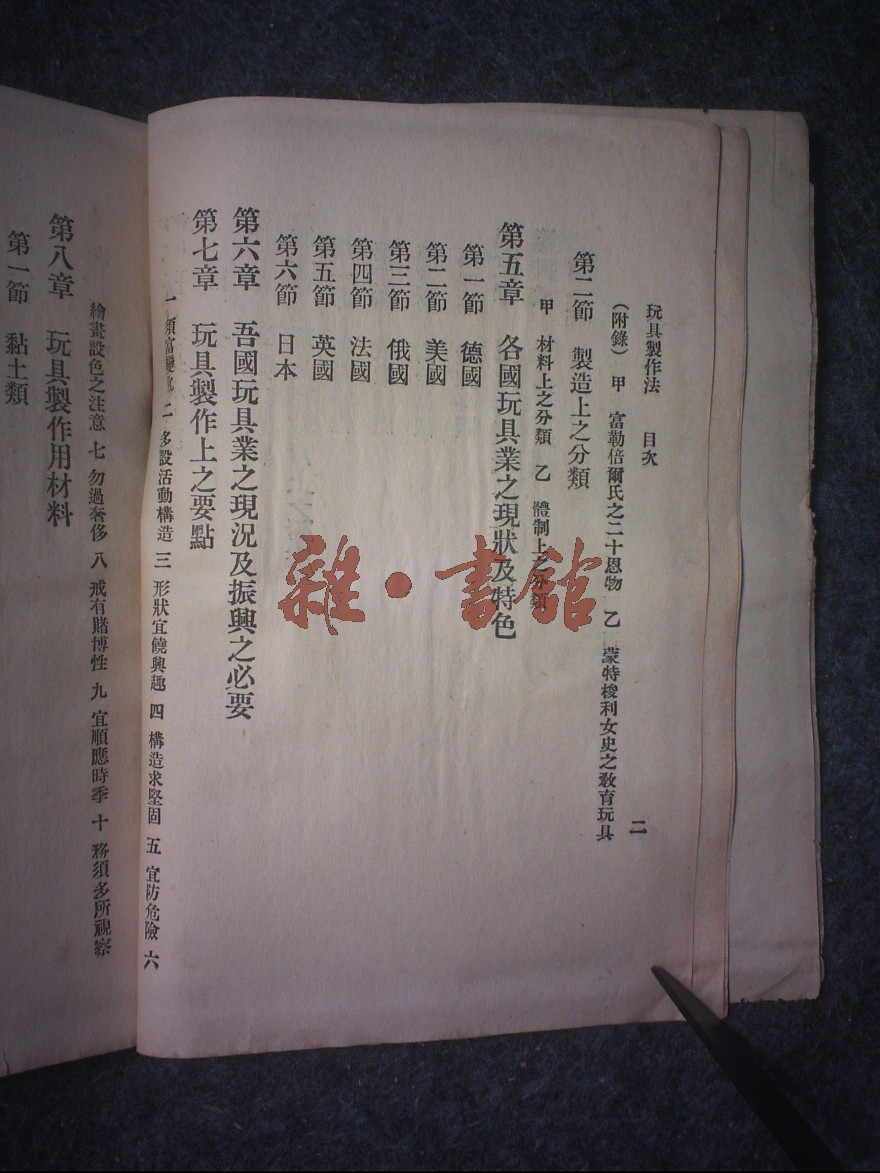 玩具製作法　目次
二
（附錄）甲　富勒倍爾氏之二十恩物　乙　蒙特梭利女史之教育玩具
第二節　製造上之分類
甲　材料上之分類　乙　體制上之分類
第五章　各國玩具業之現狀及特色
第一節　德國
第二節　美國
第三節　俄國
第四節　法國
第五節　英國
第六節　日本
第六章　吾國玩具業之現況及振興之必要
第七章　玩具製作上之要點
一　須富變化　二　多設活動構造　三　形狀宜饒興趣　四　構造求堅固　五　宜防危險　六
繪畫設色之注意　七　勿過奢侈　八　戒有賭博性　九　宜順應時季　十　務須多所視察
第八章　玩具製作用材料
第一節　黏土類
雜·書館